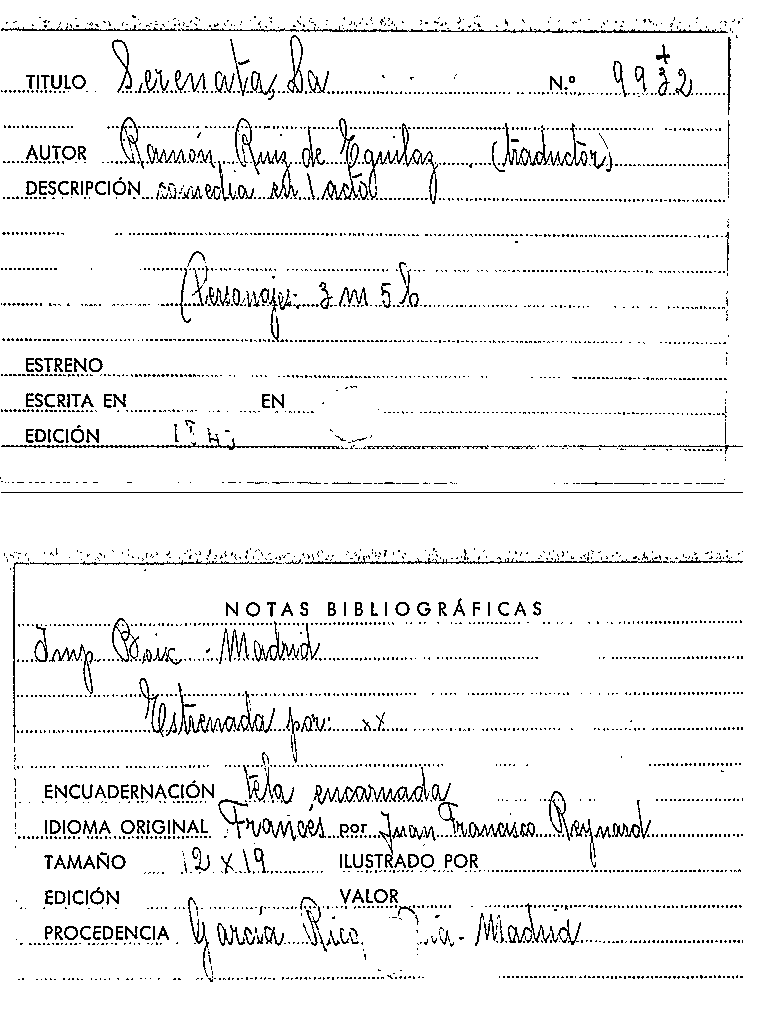 TITULO Serenata, La N.º 9932
AUTOR Ramón Ruiz de Eguilaz (traductor)
DESCRIPCIÓN comedia en 1 acto
(Personajes: 3 m 5 h
ESTRENO
ESCRITA EN EN
EDICIÓN
NOTAS BIBLIOGRÁFICAS
Imp Boix - Madrid
Estrenada por: xx
ENCUADERNACIÓN tela encarnada
IDIOMA ORIGINAL Frances por Juan Francisco Reynard
TAMAÑO 12 x 19 ILUSTRADO POR
EDICIÓN VALOR
PROCEDENCIA García Rico, - Madrid